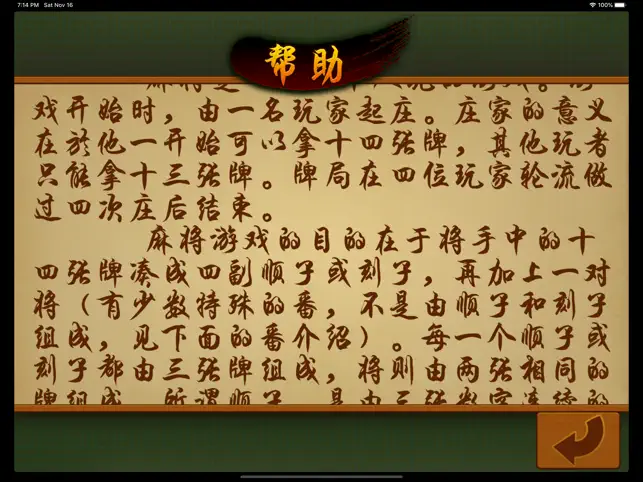 7:14 PM Sat Nov 16
100%
帮助
戏开始时，由一名玩家起庄。庄家的意义
在於他一开始可以拿十四张牌，其他玩者
只能拿十三张牌。牌局在四位玩家轮流做
过四次庄后结束。
麻将游戏的目的在于将手中的十
四张牌凑成四副顺子或刻子，再加上一对
将（有少数特殊的番，不是由顺子和刻子
组成，见下面的番介绍）。每一个顺子或
刻子都由三张牌组成，将则由两张相同的
牌组成 所谓顺子 是由三张数字连续的